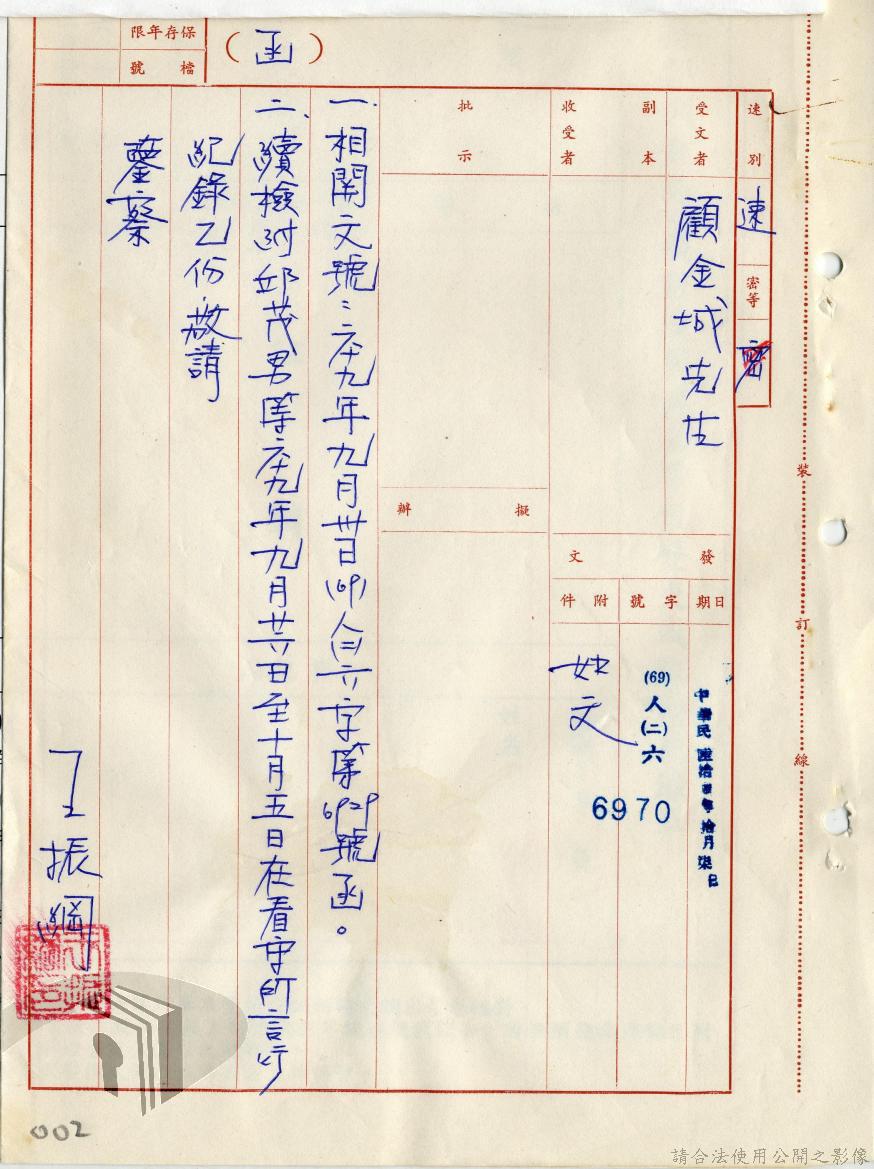 保存年限
檔號
(函)
速別
速
密等
密
受文者
顧金城先生
副本收受者
批示
擬辦
發文
日期
中華民國陸拾玖年拾月柒日
字號
(69)人(二)六
6970
附件
如文
一、相關文號：六十九年九月卅日(69)人(二)六字第6929號函。
二、續檢附邱茂男等六十九年九月廿六日至十月五日在看守所言行
紀錄乙份，敬請
鑒察
王振綱
裝訂線
002
請合法使用公開之影像